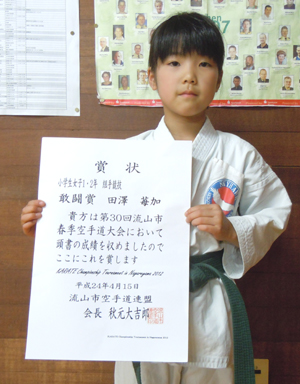 賞状
小学生女子1・2年 組手競技
敢闘賞 田澤 苺加
貴方は第30回流山市
春季空手道大会において
頭書の成績を収めましたので
ここにこれを賞します
KARATE Championship Tournament in Nagareyama 2012
平成24年4月15日
流山市空手道連盟
会長 秋元大吉郎